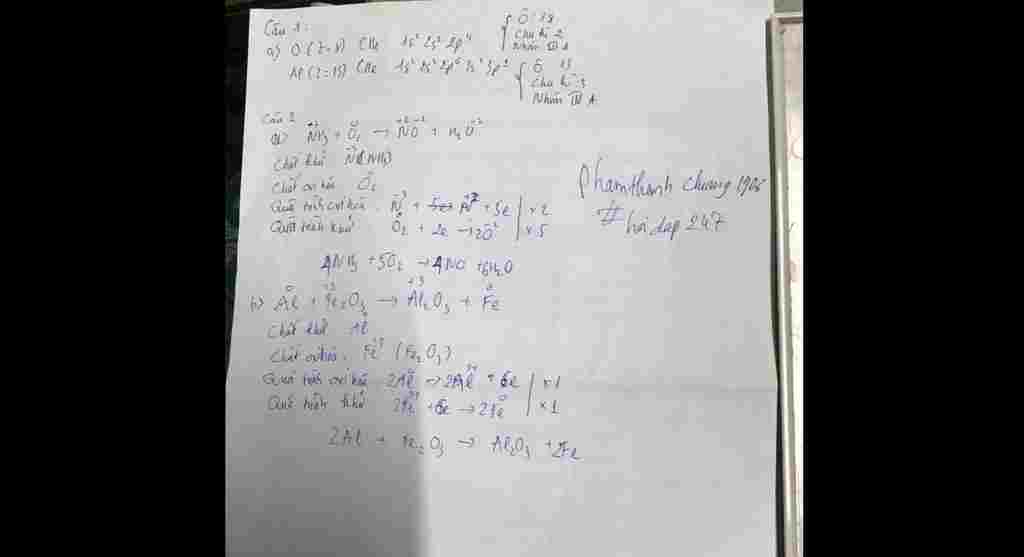 Câu 1:
a) O (Z=8) CHe 1s² 2s² 2p⁴ { Ô 18
Chu kì 2
Nhóm VI A
Al (Z=13) CHe 1s² 2s² 2p⁶ 3s² 3p¹ { Ô 13
Chu kì 3
Nhóm III A
Câu 2
a) N⁻³H₃ + O⁰₂ → N⁺²O⁻² + H₂O⁻²
Chất khử N⁻³(NH₃)
Chất oxi hóa O⁰₂
Quá trình oxi hóa: N⁻³ + 5e N⁺² + 5e | x2
Quá trình khử O⁰₂ + 2e → 2O⁻² | x5
4NH₃ + 5O₂ → 4NO + 6H₂O
b) Al⁰ + Fe⁺³₂O₃ → Al⁺³₂O₃ + Fe⁰
Chất khử Al⁰
Chất oxi hóa: Fe⁺³ (Fe₂O₃)
Quá trình oxi hóa 2Al⁰ → 2Al³⁺ + 6e | x1
Quá trình khử 2Fe³⁺ + 6e → 2Fe⁰ | x1
2Al + Fe₂O₃ → Al₂O₃ + 2Fe
phamthanh chuong 1905
# hoi dap 247